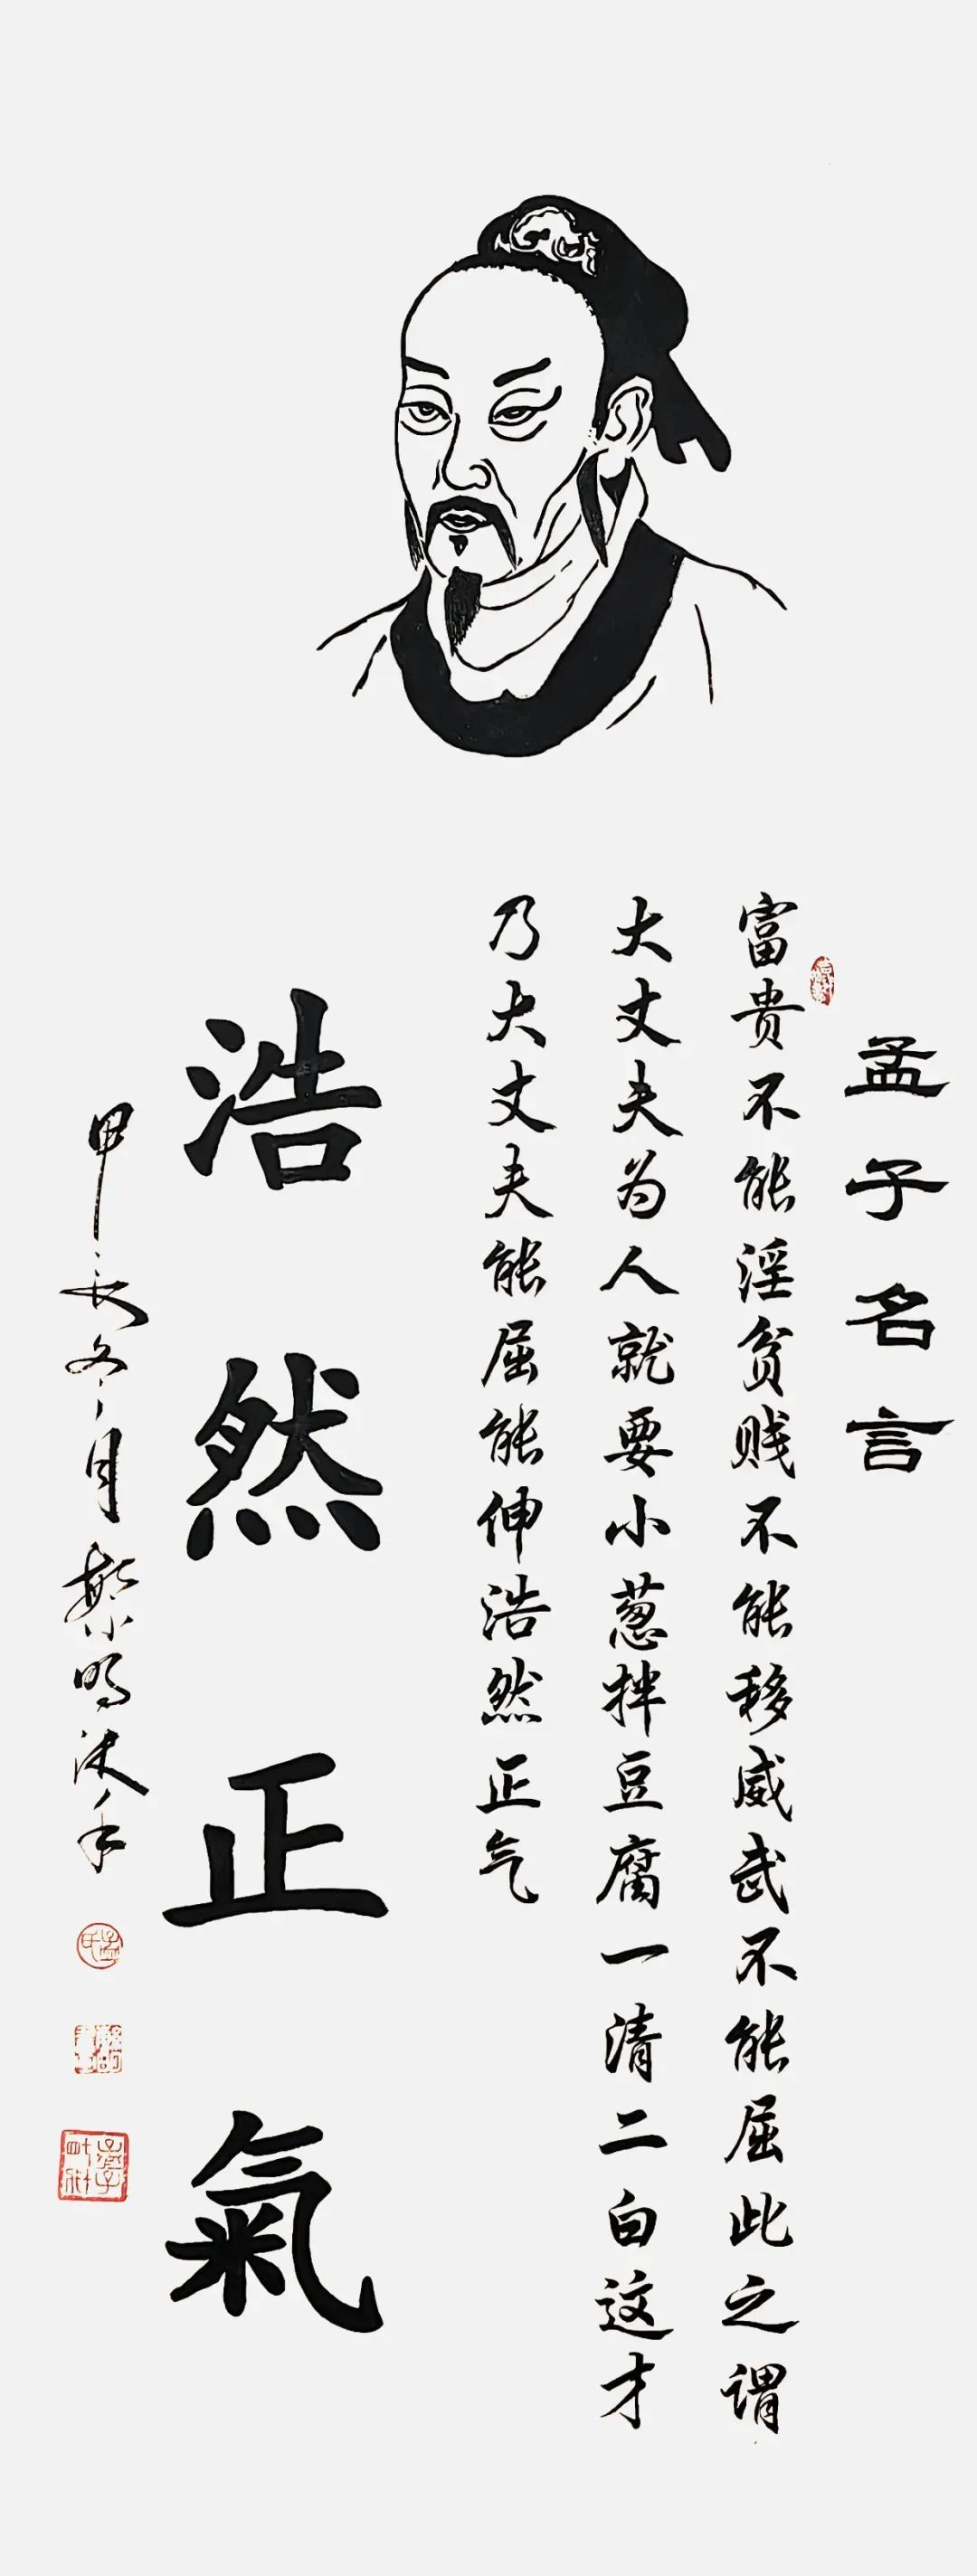 孟子名言
富贵不能淫贫贱不能移威武不能屈此之谓
大丈夫为人就要小葱拌豆腐一清二白这才
乃大丈夫能屈能伸浩然正气
浩然正氣
甲辰冬月繁鸣沐手